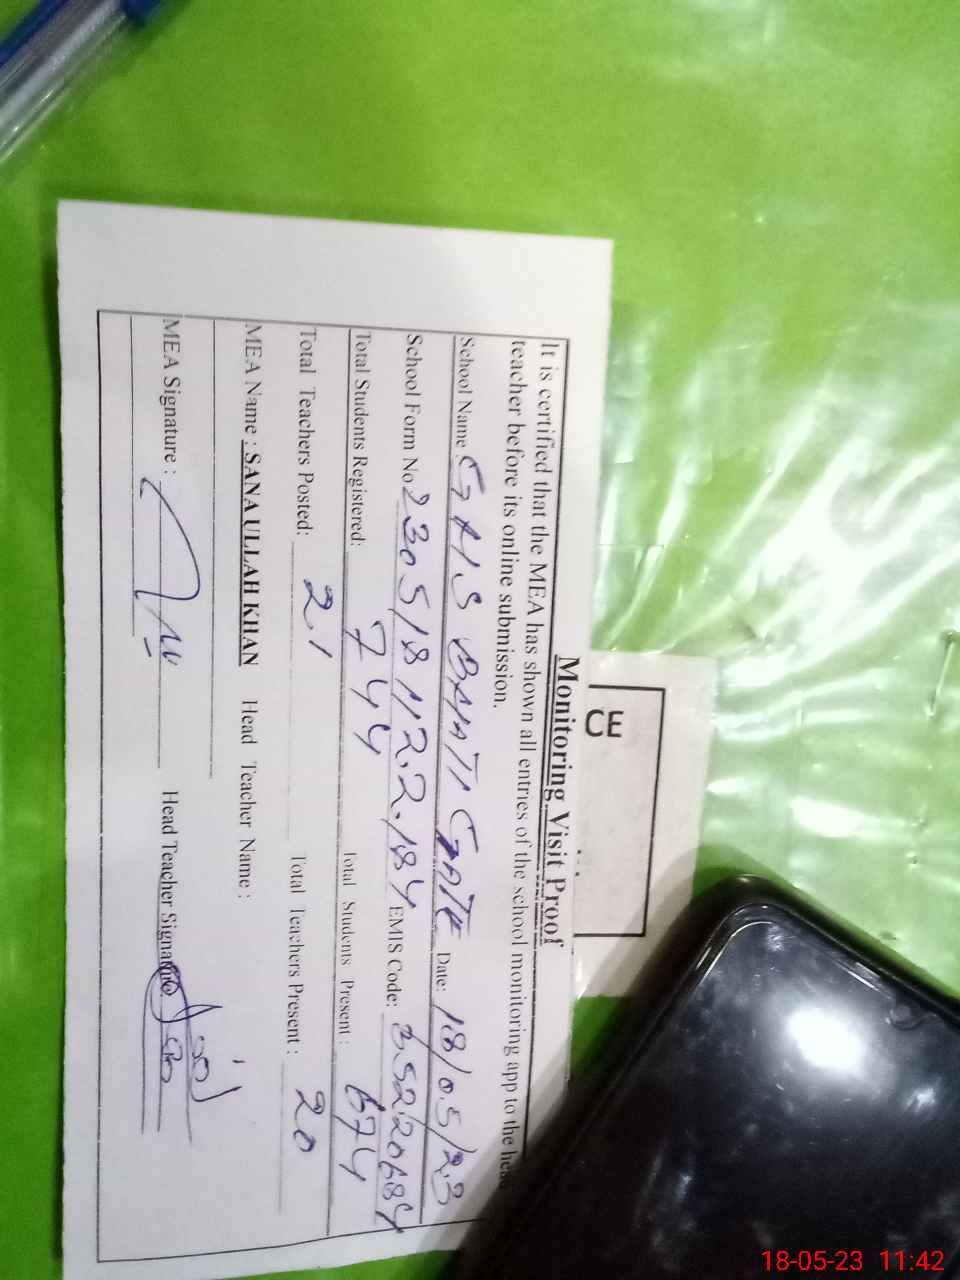 Monitoring Visit Proof
It is certified that the MEA has shown all entries of the school monitoring app to the head
teacher before its online submission.
School Name: GHS BHATI GATE Date: 18/05/23
School Form No 2305181122184 EMIS Code: 35220684
Total Students Registered: 744 Total Students Present: 674
Total Teachers Posted: 21 Total Teachers Present: 20
MEA Name: SANAULLAH KHAN Head Teacher Name:
MEA Signature: Head Teacher Signature
CE
18-05-23 11:42